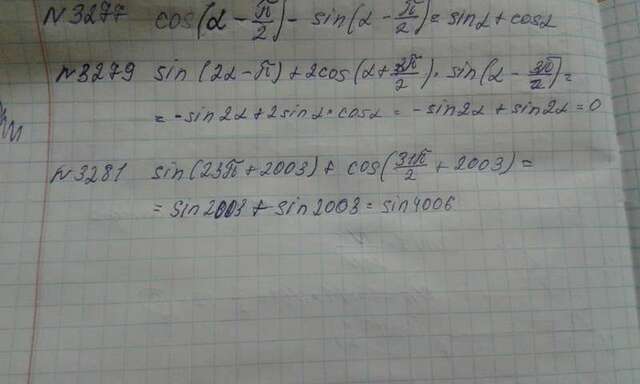 N3277 cos(α - π/2) - sin(α - π/2) = sinα + cosα
N3279 sin(2α - π) + 2cos(α + 3π/2) · sin(α - 3π/2) =
= -sin2α + 2sinα · cosα = -sin2α + sin2α = 0
N3281 sin(23π + 2003) + cos(31π/2 + 2003) =
= sin2003 + sin2003 = sin4006